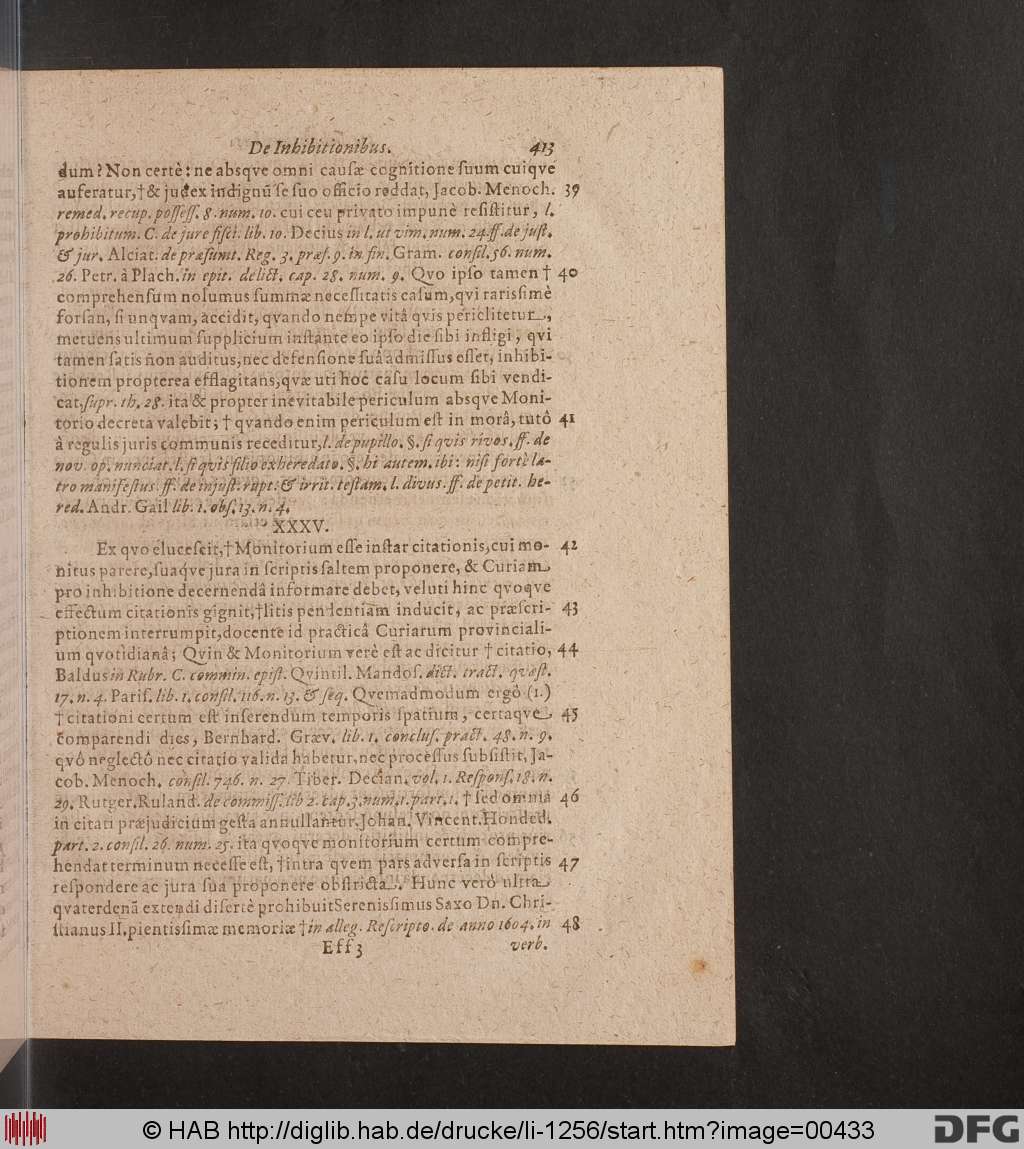 De Inhibitionibus. 413
dum? Non certè: ne absqve omni causæ cognitione suum cuiqve
auferatur, † & judex indignũ se suo officio reddat, Jacob. Menoch. 39
remed. recup. possess. 8. num. 10. cui ceu privato impunè resistitur, l.
prohibitum. C. de jure fisci. lib. 10. Decius in l. ut vim. num. 24. ff. de just.
& jur. Alciat. de præsumt. Reg. 3. præs. 9. in fin. Gram. consil. 56. num.
26. Petr. à Plach. in epit. delict. cap. 28. num. 9. Qvo ipso tamen † 40
comprehensum nolumus summæ necessitatis casum, qvi rarissimè
forsan, si unqvam, accidit, qvando nempe vitâ qvis periclitetur,
metuens ultimum supplicium instante eo ipso die sibi infligi, qvi
tamen satis non auditus, nec defensione suâ admissus esset, inhibi-
tionem propterea efflagitans, qvæ uti hoc casu locum sibi vendi-
cat, supr. th. 28. ita & propter inevitabile periculum absqve Moni-
torio decreta valebit; † qvando enim periculum est in morâ, tutò 41
à regulis juris communis receditur, l. de pupillo. §. si qvis rivos. ff. de
nov. op. nunciat. l. si qvis filio exheredato. §. hi autem. ibi: nisi fortè la-
tro manifestus. ff. de injust. rupt. & irrit. testam. l. divus. ff. de petit. he-
red. Andr. Gail lib. 1. obs. 13. n. 4.
XXXV.
Ex qvo elucescit, † Monitorium esse instar citationis, cui mo- 42
nitus parere, suaqve jura in scriptis saltem proponere, & Curiam
pro inhibitione decernendâ informare debet, veluti hinc qvoqve
effectum citationis gignit, † litis pendentiam inducit, ac præscri- 43
ptionem interrumpit, docente id practicâ Curiarum provinciali-
um qvotidianâ; Qvin & Monitorium verè est ac dicitur † citatio, 44
Baldus in Rubr. C. commin. epist. Qvintil. Mandos. dict. tract. qvæst.
17. n. 4. Paris. lib. 1. consil. 116. n. 13. & seq. Qvemadmodum ergò (1.)
† citationi certum est inserendum temporis spatium, certaqve 45
comparendi dies, Bernhard. Græv. lib. 1. conclus. pract. 48. n. 9.
qvô neglectô nec citatio valida habetur, nec processus subsistit, Ja-
cob. Menoch. consil. 746. n. 27. Tiber. Decian. vol. 1. Respons. 18. n.
29. Rutger. Ruland. de commiss. lib 2. cap. 3. num. 1. part. 1. † sed omnia 46
in citati præjudicium gesta annullantur. Johan. Vincent. Honded.
part. 2. consil. 26. num. 25. ita qvoqve monitorium certum compre-
hendat terminum necesse est, † intra qvem pars adversa in scriptis 47
respondere ac jura sua proponere obstricta. Hunc verò ultra
qvaterdenã extendi disertè prohibuit Serenissimus Saxo Dn. Chri-
stianus II. pientissimæ memoriæ † in alleg. Rescripto. de anno 1604. in 48
Eff 3 verb.
© HAB http://diglib.hab.de/drucke/li-1256/start.htm?image=00433
DFG